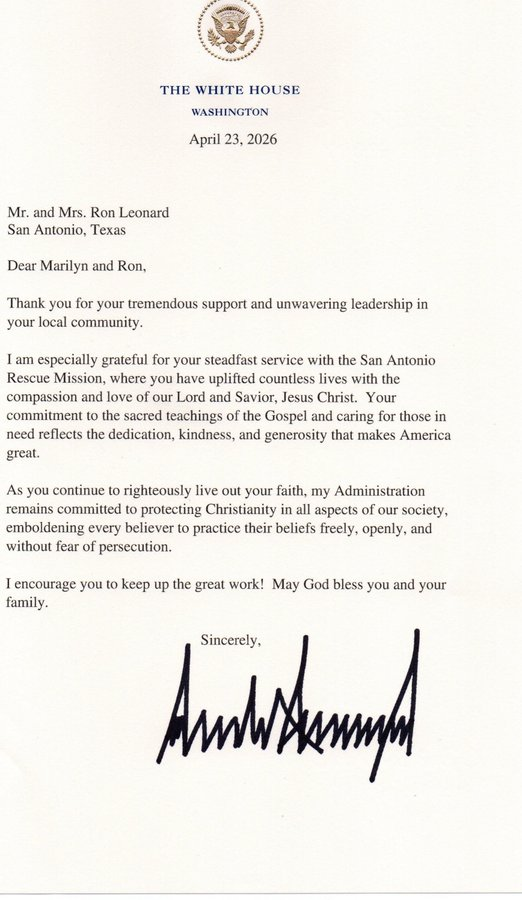 THE WHITE HOUSE
WASHINGTON
April 23, 2026
Mr. and Mrs. Ron Leonard
San Antonio, Texas
Dear Marilyn and Ron,
Thank you for your tremendous support and unwavering leadership in
your local community.
I am especially grateful for your steadfast service with the San Antonio
Rescue Mission, where you have uplifted countless lives with the
compassion and love of our Lord and Savior, Jesus Christ.  Your
commitment to the sacred teachings of the Gospel and caring for those in
need reflects the dedication, kindness, and generosity that makes America
great.
As you continue to righteously live out your faith, my Administration
remains committed to protecting Christianity in all aspects of our society,
emboldening every believer to practice their beliefs freely, openly, and
without fear of persecution.
I encourage you to keep up the great work!  May God bless you and your
family.
Sincerely,